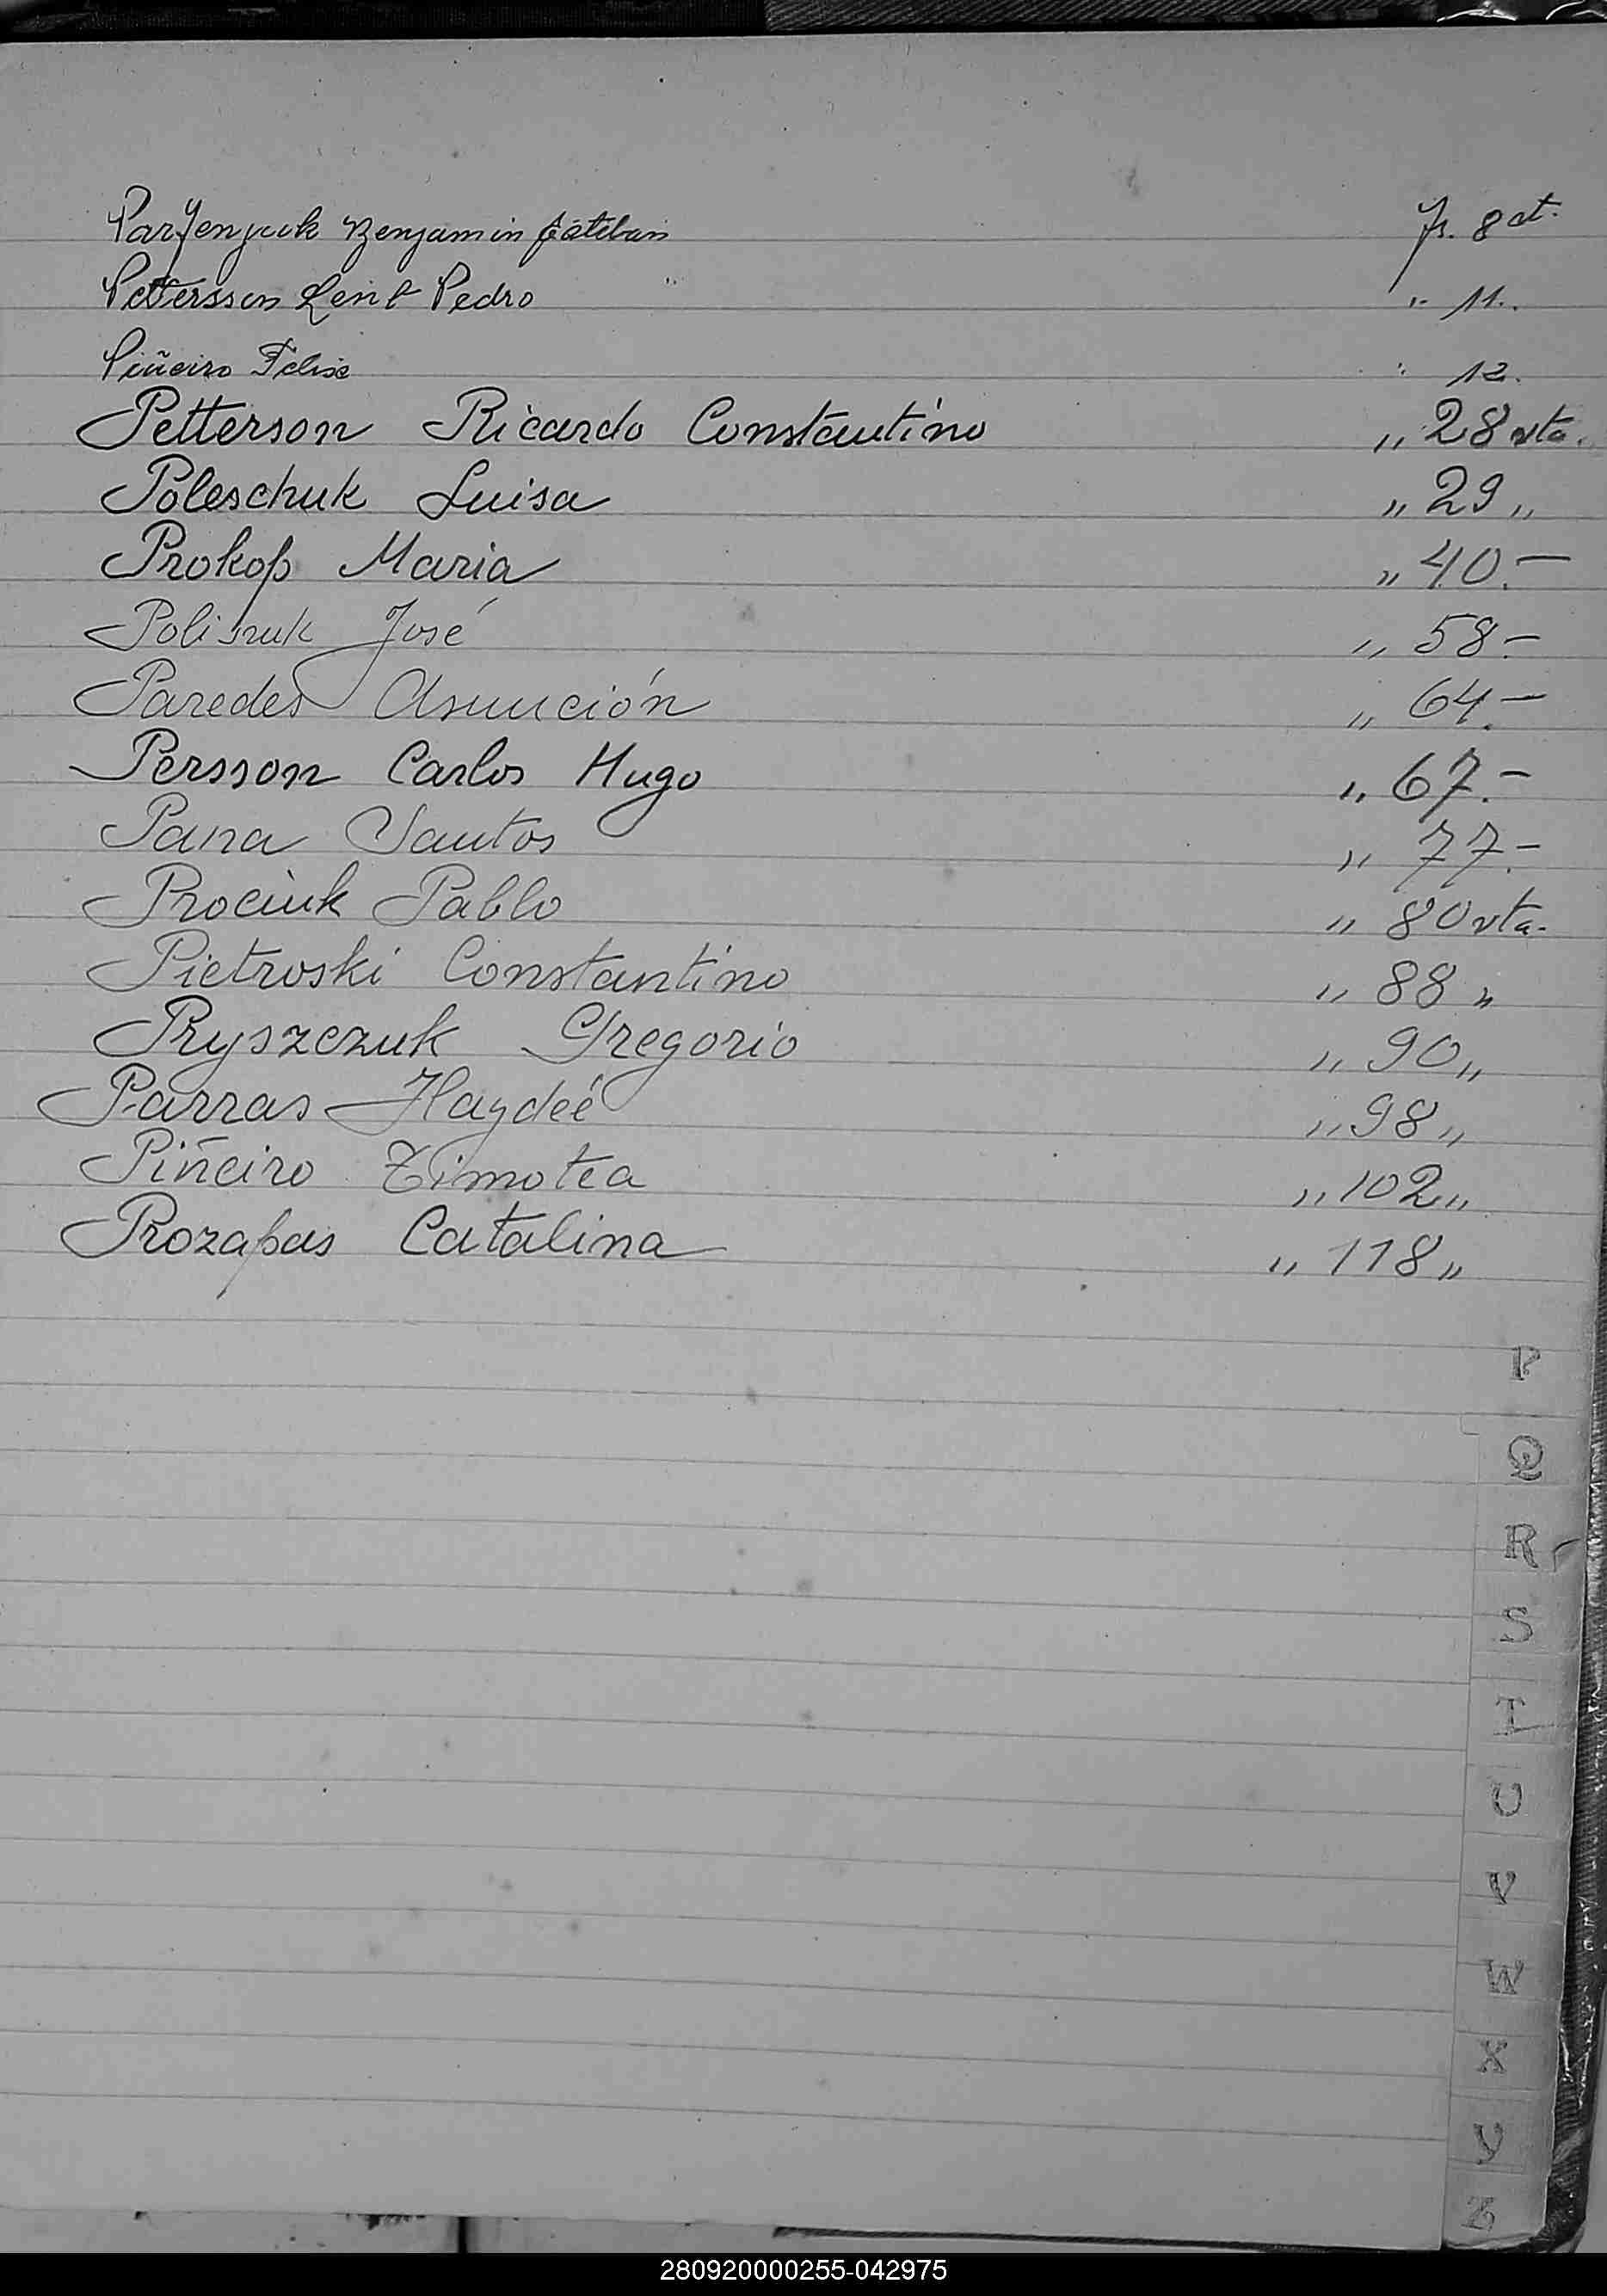 Parfenyuk Benjamin Esteban Fs. 8 vt.
Pettersson Lent Pedro " 11.
Piñeiro Felix " 12.
Petterson Ricardo Constantino " 28 vta.
Poleschuk Luisa " 29 "
Prokop Maria " 40.-
Polisruk José " 58.-
Paredes Asunción " 64.-
Persson Carlos Hugo " 67.-
Pana Santos " 77.-
Prociuk Pablo " 80 vta.
Pietroski Constantino " 88 "
Pryszczuk Gregorio " 90 "
Parras Haydeé " 98 "
Piñeiro Timotea " 102 "
Prozapas Catalina " 118 "
P
Q
R
S
T
U
V
W
X
Y
Z
280920000255-042975